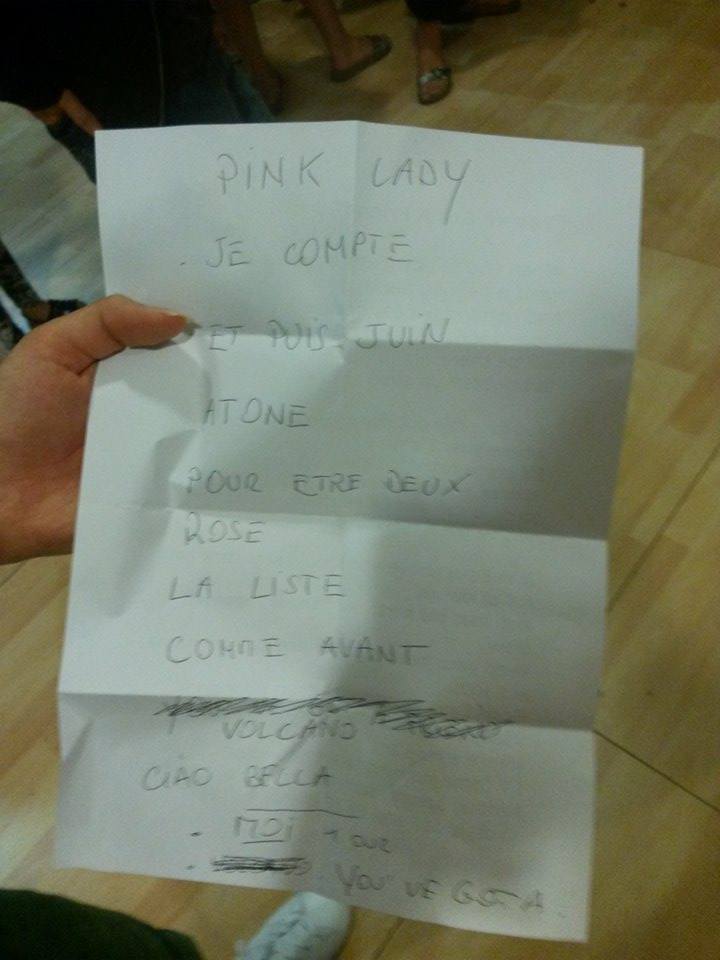 PINK LADY
. JE COMPTE
ET PUIS JUIN
ATONE
POUR ETRE DEUX
ROSE
LA LISTE
COMME AVANT
VOLCANO
CIAO BELLA
. MOI
. YOU'VE GOT A